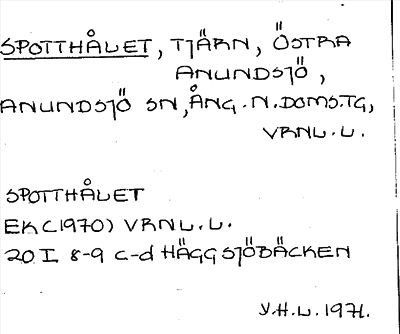 SPOTTHÅLET, TJÄRN, ÖSTRA
ANUNDSJÖ,
ANUNDSJÖ SN, ÅNG. N. DOMS.TG,
VRNL.L.
SPOTTHÅLET
EK (1970) VRNL.L.
20 I 8-9 c-d HÄGGSJÖBÄCKEN
Y.H.L. 1971.